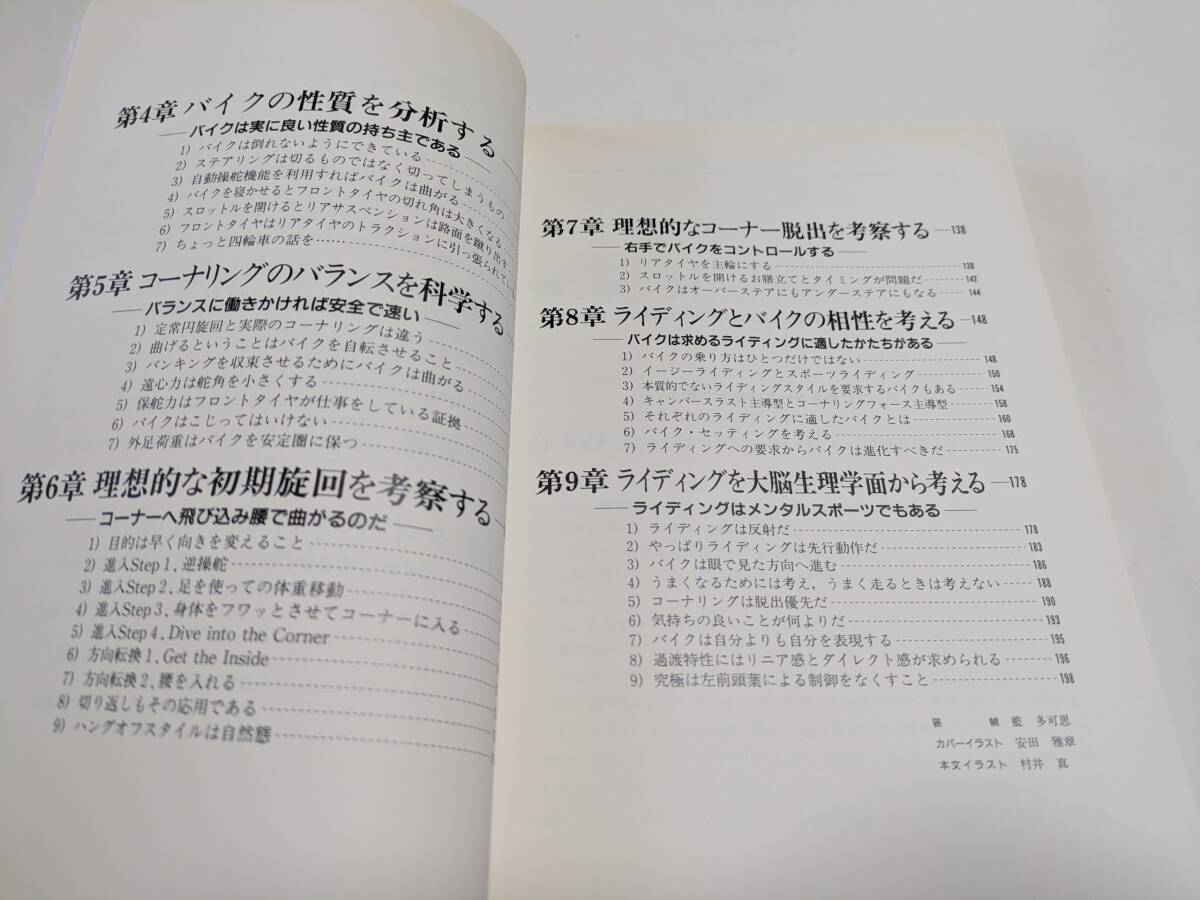 第4章 バイクの性質を分析する
――バイクは実に良い性質の持ち主である――
1) バイクは倒れないようにできている
2) ステアリングは切るものではなく切ってしまうもの
3) 自動操舵機能を利用すればバイクは曲がる
4) バイクを寝かせるとフロントタイヤの切れ角は大きくなる
5) スロットルを開けるとリアサスペンションは路面を蹴り出す
6) フロントタイヤはリアタイヤのトラクションに引っ張られている
7) ちょっと四輪車の話を……
第5章 コーナリングのバランスを科学する
――バランスに働きかければ安全で速い――
1) 定常円旋回と実際のコーナリングは違う
2) 曲げるということはバイクを自転させること
3) バンキングを収束させるためにバイクは曲がる
4) 遠心力は舵角を小さくする
5) 保舵力はフロントタイヤが仕事をしている証拠
6) バイクはこじってはいけない
7) 外足荷重はバイクを安定圏に保つ
第6章 理想的な初期旋回を考察する
――コーナーへ飛び込み腰で曲がるのだ――
1) 目的は早く向きを変えること
2) 進入Step 1、逆操舵
3) 進入Step 2、足を使っての体重移動
4) 進入Step 3、身体をフワッとさせてコーナーに入る
5) 進入Step 4、Dive into the Corner
6) 方向転換 1、Get the Inside
7) 方向転換 2、腰を入れる
8) 切り返しもその応用である
9) ハングオフスタイルは自然態
第7章 理想的なコーナー脱出を考察する ―138
――右手でバイクをコントロールする――
1) リアタイヤを主輪にする 138
2) スロットルを開けるお膳立てとタイミングが問題だ 142
3) バイクはオーバーステアにもアンダーステアにもなる 144
第8章 ライディングとバイクの相性を考える ―148
――バイクは求めるライディングに適したかたちがある――
1) バイクの乗り方はひとつだけではない 148
2) イージーライディングとスポーツライディング 150
3) 本質的でないライディングスタイルを要求するバイクもある 154
4) キャンバースラスト主導型とコーナリングフォース主導型 158
5) それぞれのライディングに適したバイクとは 160
6) バイク・セッティングを考える 168
7) ライディングへの要求からバイクは進化すべきだ 175
第9章 ライディングを大脳生理学面から考える ―178
――ライディングはメンタルスポーツでもある――
1) ライディングは反射だ 178
2) やっぱりライディングは先行動作だ 183
3) バイクは眼で見た方向へ進む 186
4) うまくなるためには考え，うまく走るときは考えない 188
5) コーナリングは脱出優先だ 190
6) 気持ちの良いことが何よりだ 193
7) バイクは自分よりも自分を表現する 195
8) 過渡特性にはリニア感とダイレクト感が求められる 196
9) 究極は左前頭葉による制御をなくすこと 198
装 幀 藍 多可思
カバーイラスト 安田 雅章
本文イラスト 村井 真